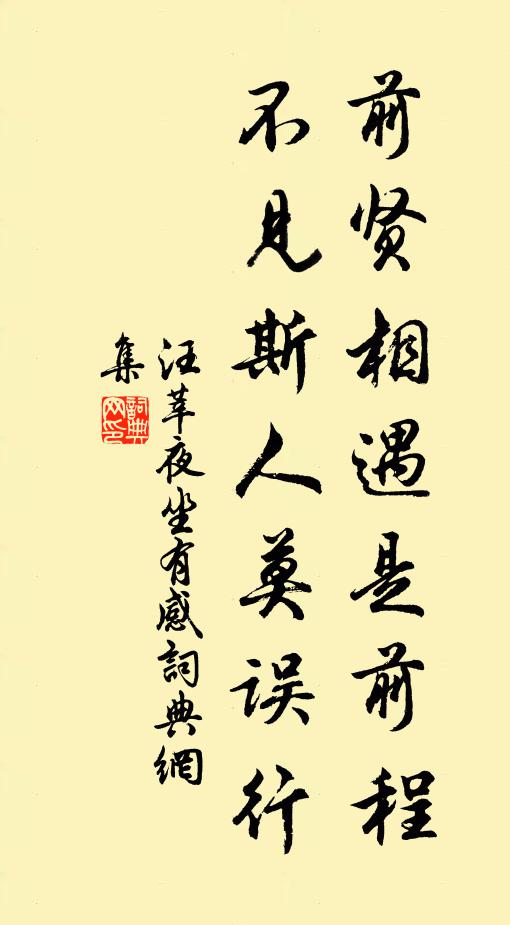 前贤相遇是前程
不见斯人莫误行
汪莘夜坐有感詞典網
集
詞典
网印